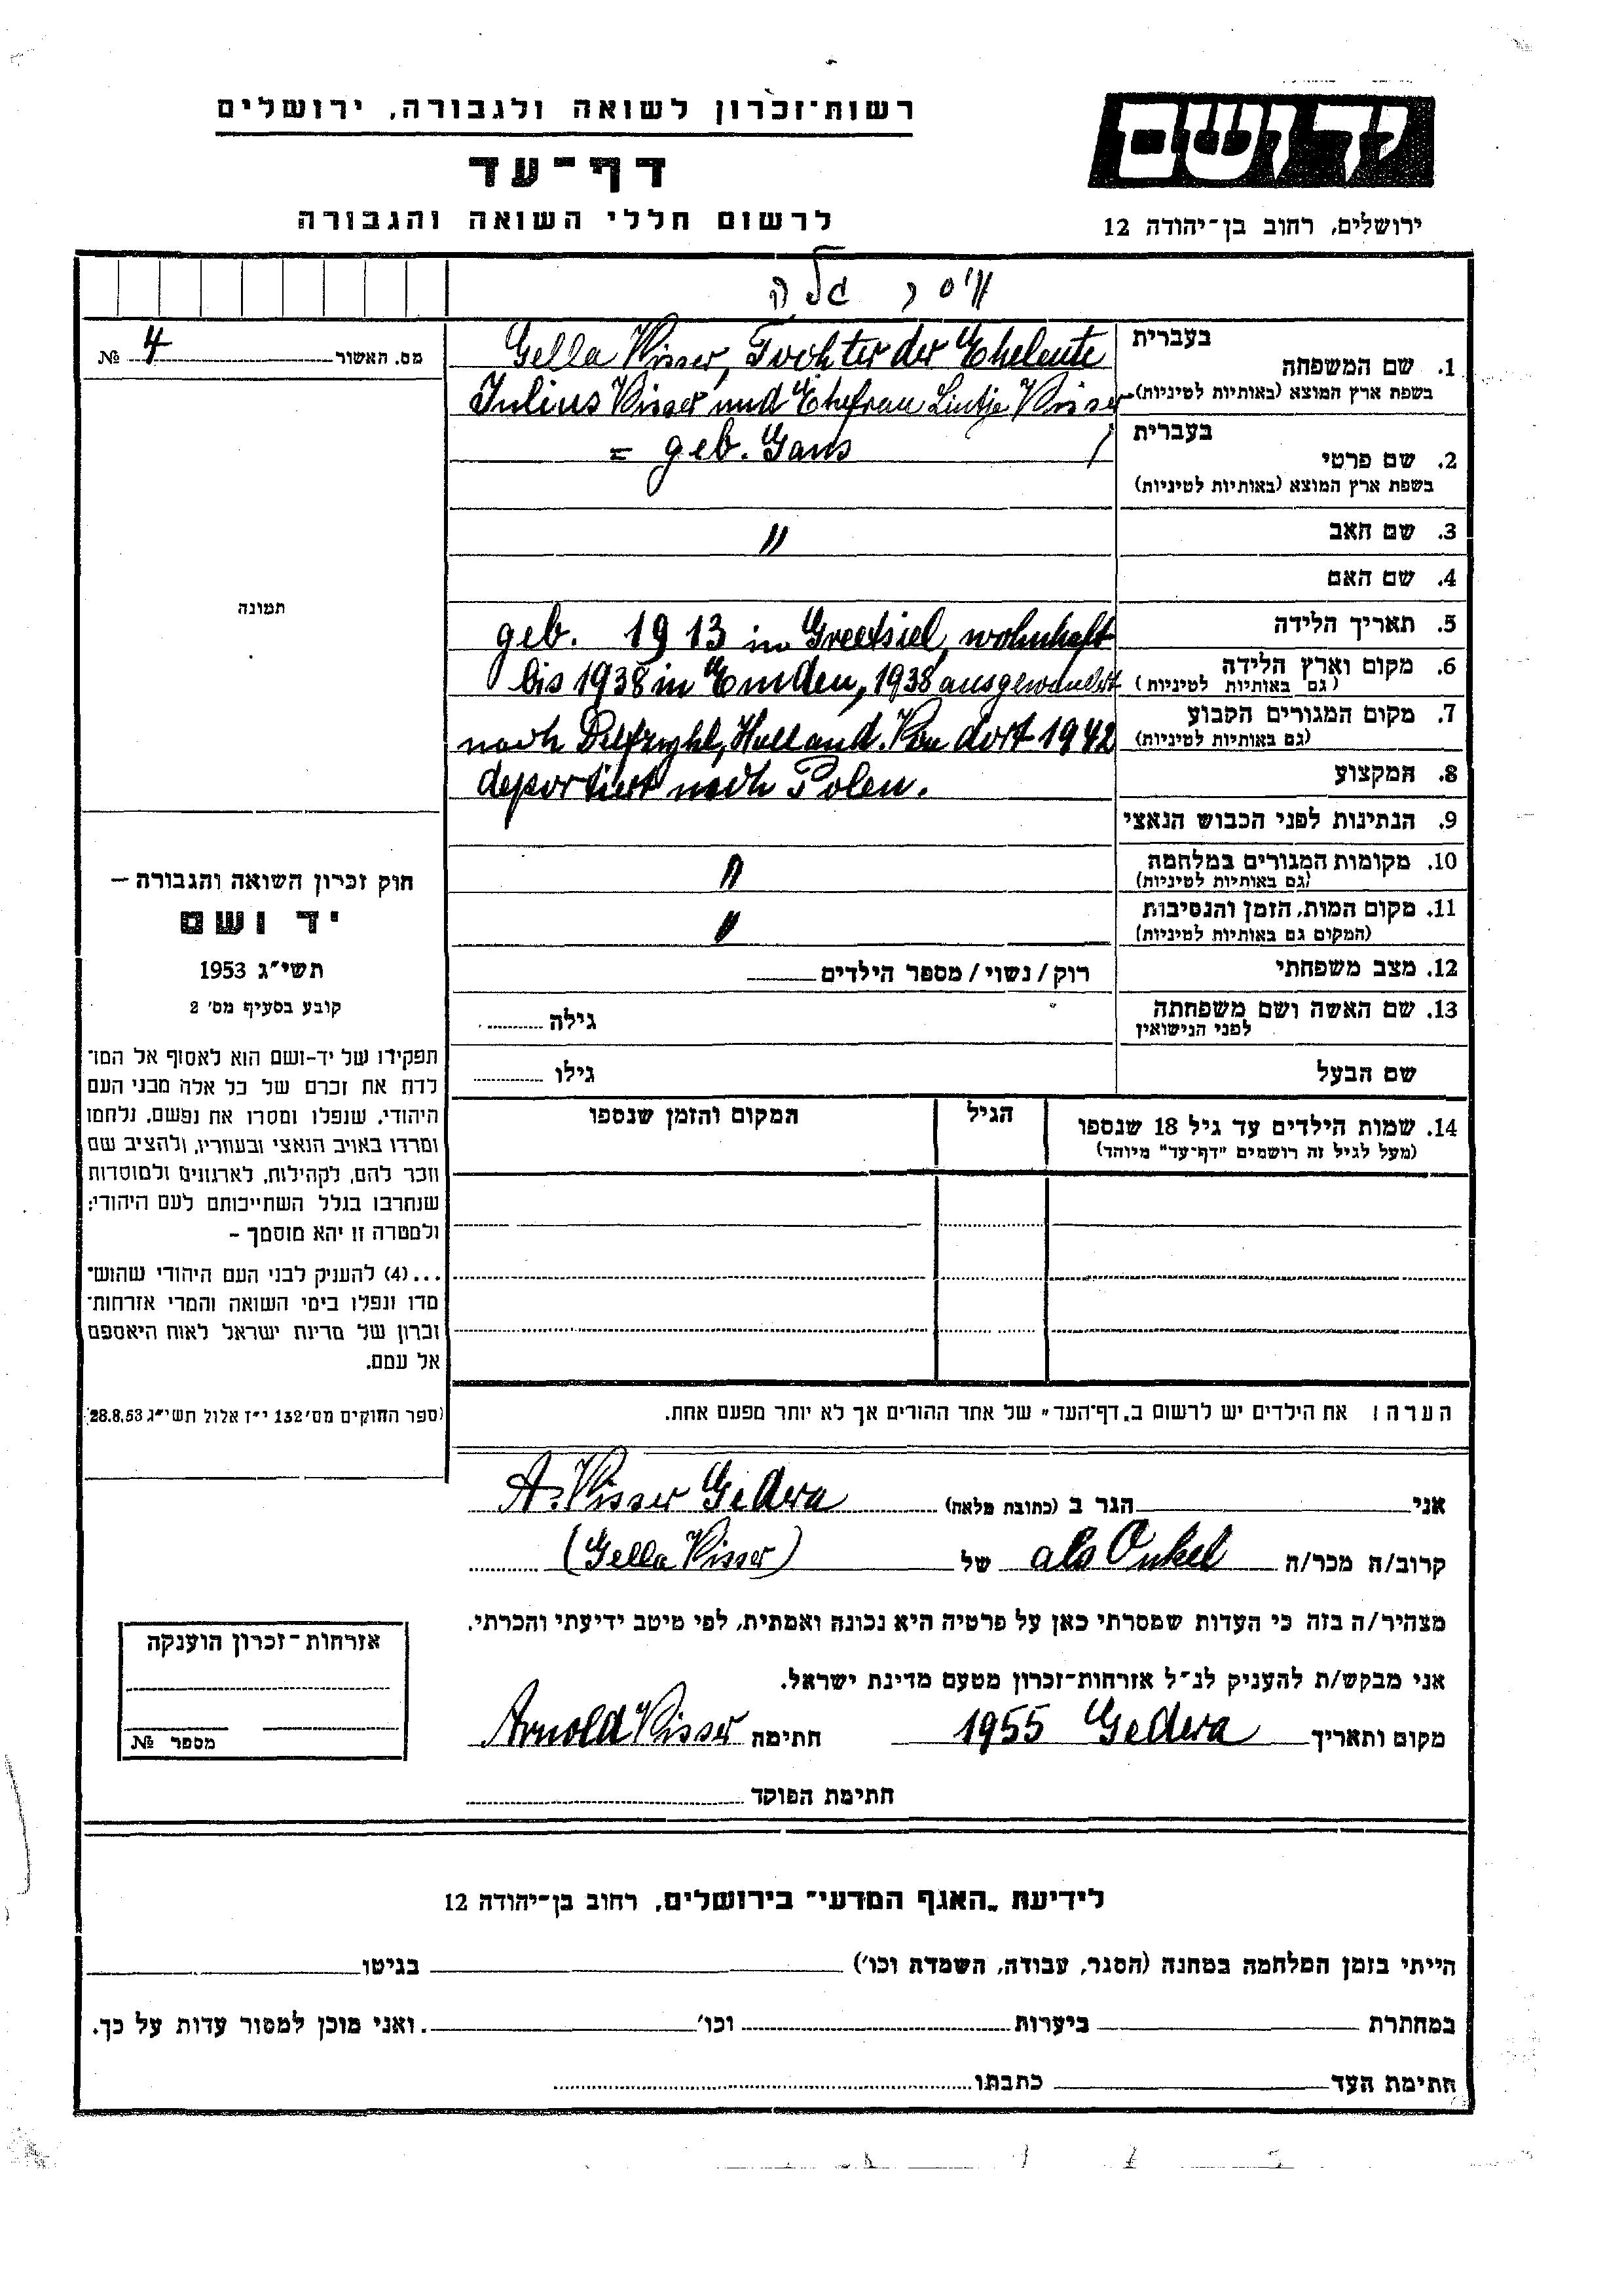 רשות־זכרון לשואה ולגבורה, ירושלים
דף־עד
לרשום חללי השואה והגבורה
יד ושם
ירושלים, רחוב בן־יהודה 12
וויסר גלה
מס. האשור 4 №
בעברית
1. שם המשפחה
בשפת ארץ המוצא (באותיות לטיניות)
Gella Visser, Tochter der Eheleute
Julius Visser und Ehefrau Lintje Visser
בעברית
= geb. Gans
2. שם פרטי
בשפת ארץ המוצא (באותיות לטיניות)
3. שם האב
"
4. שם האם
5. תאריך הלידה
geb. 1913 in Greetsiel, wohnhaft
6. מקום וארץ הלידה
(גם באותיות לטיניות)
bis 1938 in Emden, 1938 ausgewandert
7. מקום המגורים הקבוע
(גם באותיות לטיניות)
nach Delfzyhl, Holland. Von dort 1942
8. המקצוע
deportiert nach Polen.
9. הנתינות לפני הכבוש הנאצי
10. מקומות המגורים במלחמה
(גם באותיות לטיניות)
"
11. מקום המות, הזמן והנסיבות
(המקום גם באותיות לטיניות)
"
12. מצב משפחתי
רוק/נשוי/מספר הילדים
13. שם האשה ושם משפחתה
לפני הנישואין
גילה
שם הבעל
גילו
14. שמות הילדים עד גיל 18 שנספו
(מעל לגיל זה רושמים "דף־עד" מיוחד)
הגיל
המקום והזמן שנספו
תמונה
חוק זכרון השואה והגבורה –
יד ושם
תשי"ג 1953
קובע בסעיף מס' 2
תפקידו של יד-ושם הוא לאסוף אל המו־
לדת את זכרם של כל אלה מבני העם
היהודי, שנפלו ומסרו את נפשם, נלחמו
ומרדו באויב הנאצי ובעוזריו, ולהציב שם
וזכר להם, לקהילות, לארגונים ולמוסדות
שנחרבו בגלל השתייכותם לעם היהודי;
ולמטרה זו יהא מוסמך –
...(4) להעניק לבני העם היהודי שהוש־
מדו ונפלו בימי השואה והמרי אזרחות־
זכרון של מדינת ישראל לאות היאספם
אל עמם.
(ספר החוקים מס' 132 י"ז אלול תשי"ג 28.8.53)
הערה: את הילדים יש לרשום ב„דף־העד" של אחד ההורים אך לא יותר מפעם אחת.
אני הגר ב (כתובת מלאה) A. Visser Gedera
קרוב/ה מכר/ה als Onkel של (Gella Visser)
מצהיר/ה בזה כי העדות שמסרתי כאן על פרטיה היא נכונה ואמתית, לפי מיטב ידיעתי והכרתי.
אני מבקש/ת להעניק לנ"ל אזרחות־זכרון מטעם מדינת ישראל.
מקום ותאריך 1955 Gedera חתימה Arnold Visser
חתימת הפוקד
אזרחות־זכרון הוענקה
מספר №
לידיעת „האגף המדעי" בירושלים, רחוב בן־יהודה 12
הייתי בזמן המלחמה במחנה (הסגר, עבודה, השמדה וכו') בגיטו
במחתרת ביערות וכו' . ואני מוכן למסור עדות על כך.
חתימת העד כתבתו